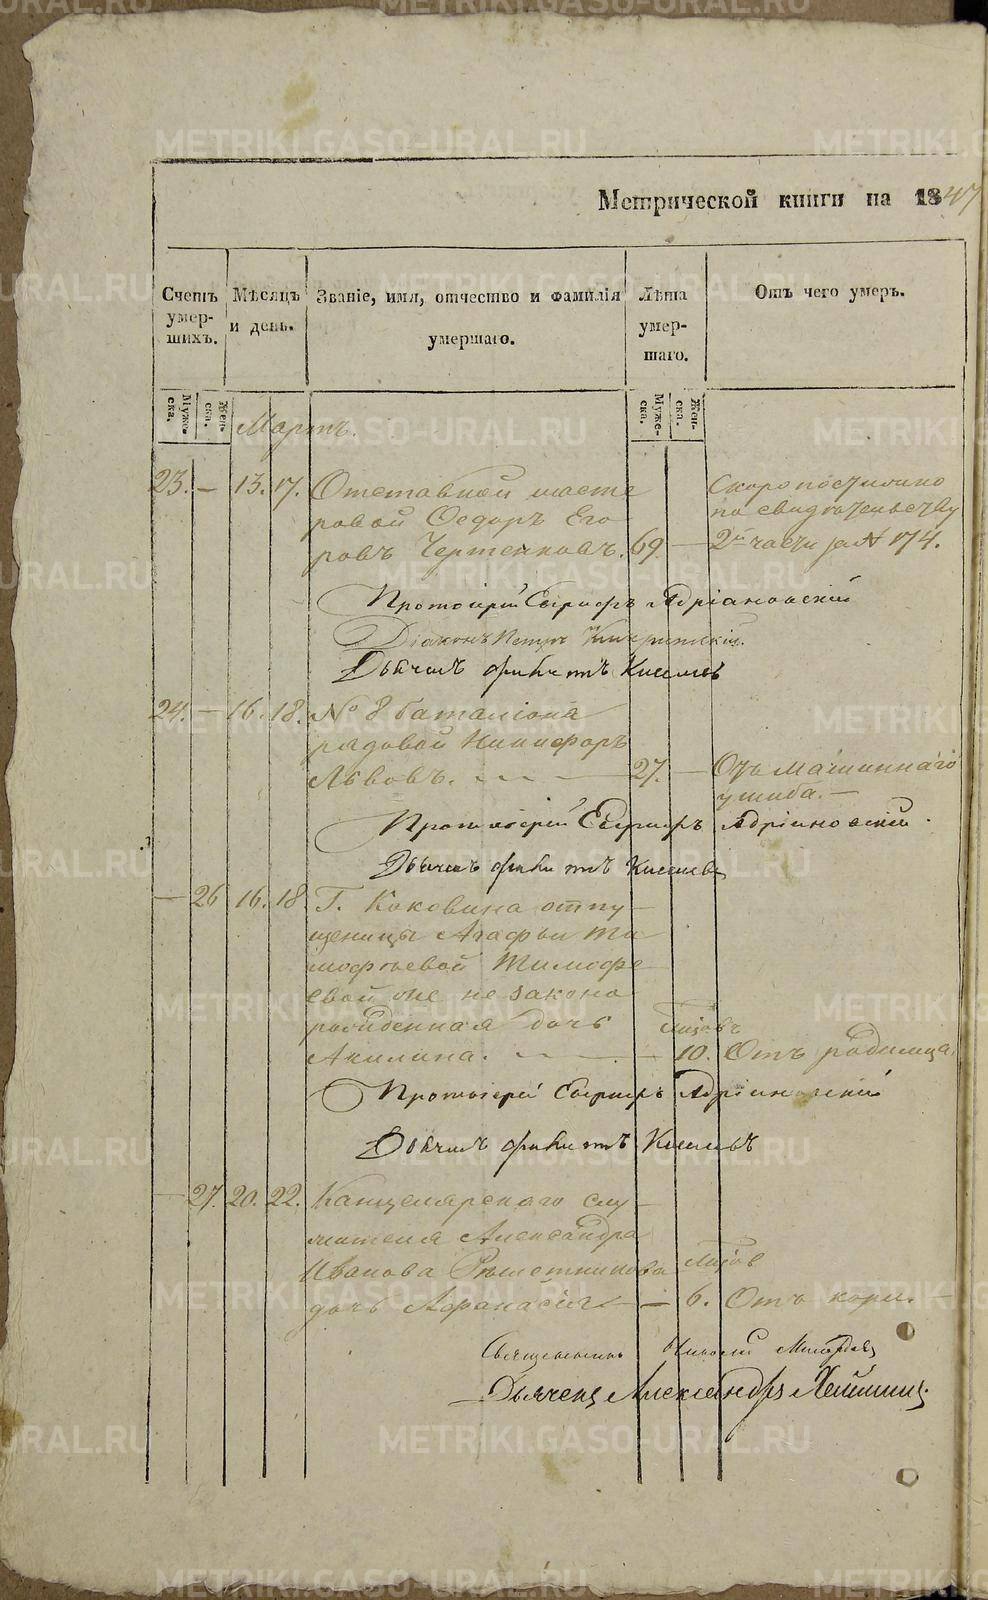 Метрической книги на 1847
Счетъ умер-шихъ.
Мѣсяцъ и день.
Званіе, имя, отчество и фамилія умершаго.
Лѣта умер-шаго.
Отъ чего умеръ.
Муже-ска.
Жен-ска.
Муже-ска.
Жен-ска.
Мартъ.
23. — 13. 17. Отставной масте
ровой Ѳедоръ Его
ровъ Чертенковъ. 69. —
Скоропостижно
по свидѣтельству
2й части за № 174.
Протоіерей Адріановскій
Діаконъ Петръ
Дьячекъ Киселевъ
24. — 16. 18. № 8 баталіона
рядовой Никифоръ
Львовъ. — 27. — Отъ машиннаго
ушиба. —
Протоіерей Адріановскій.
Дьячекъ Киселевъ
— 26 16. 18 Г. Коковина отпу-
щеницы Агафьи Ти
мофѣевой Тимофе
евой же не законо
рожденная дочь
Акилина. — 10. Отъ родимца.
Протоіерей Адріановскій
Дьячекъ Киселевъ
— 27. 20. 22. Канцелярскаго слу-
жителя Александра
Иванова Рѣшетникова
дочь Афанасія — 6. Отъ кори. —
Священникъ Николай
Дьячекъ Александръ
METRIKI.GASO-URAL.RU